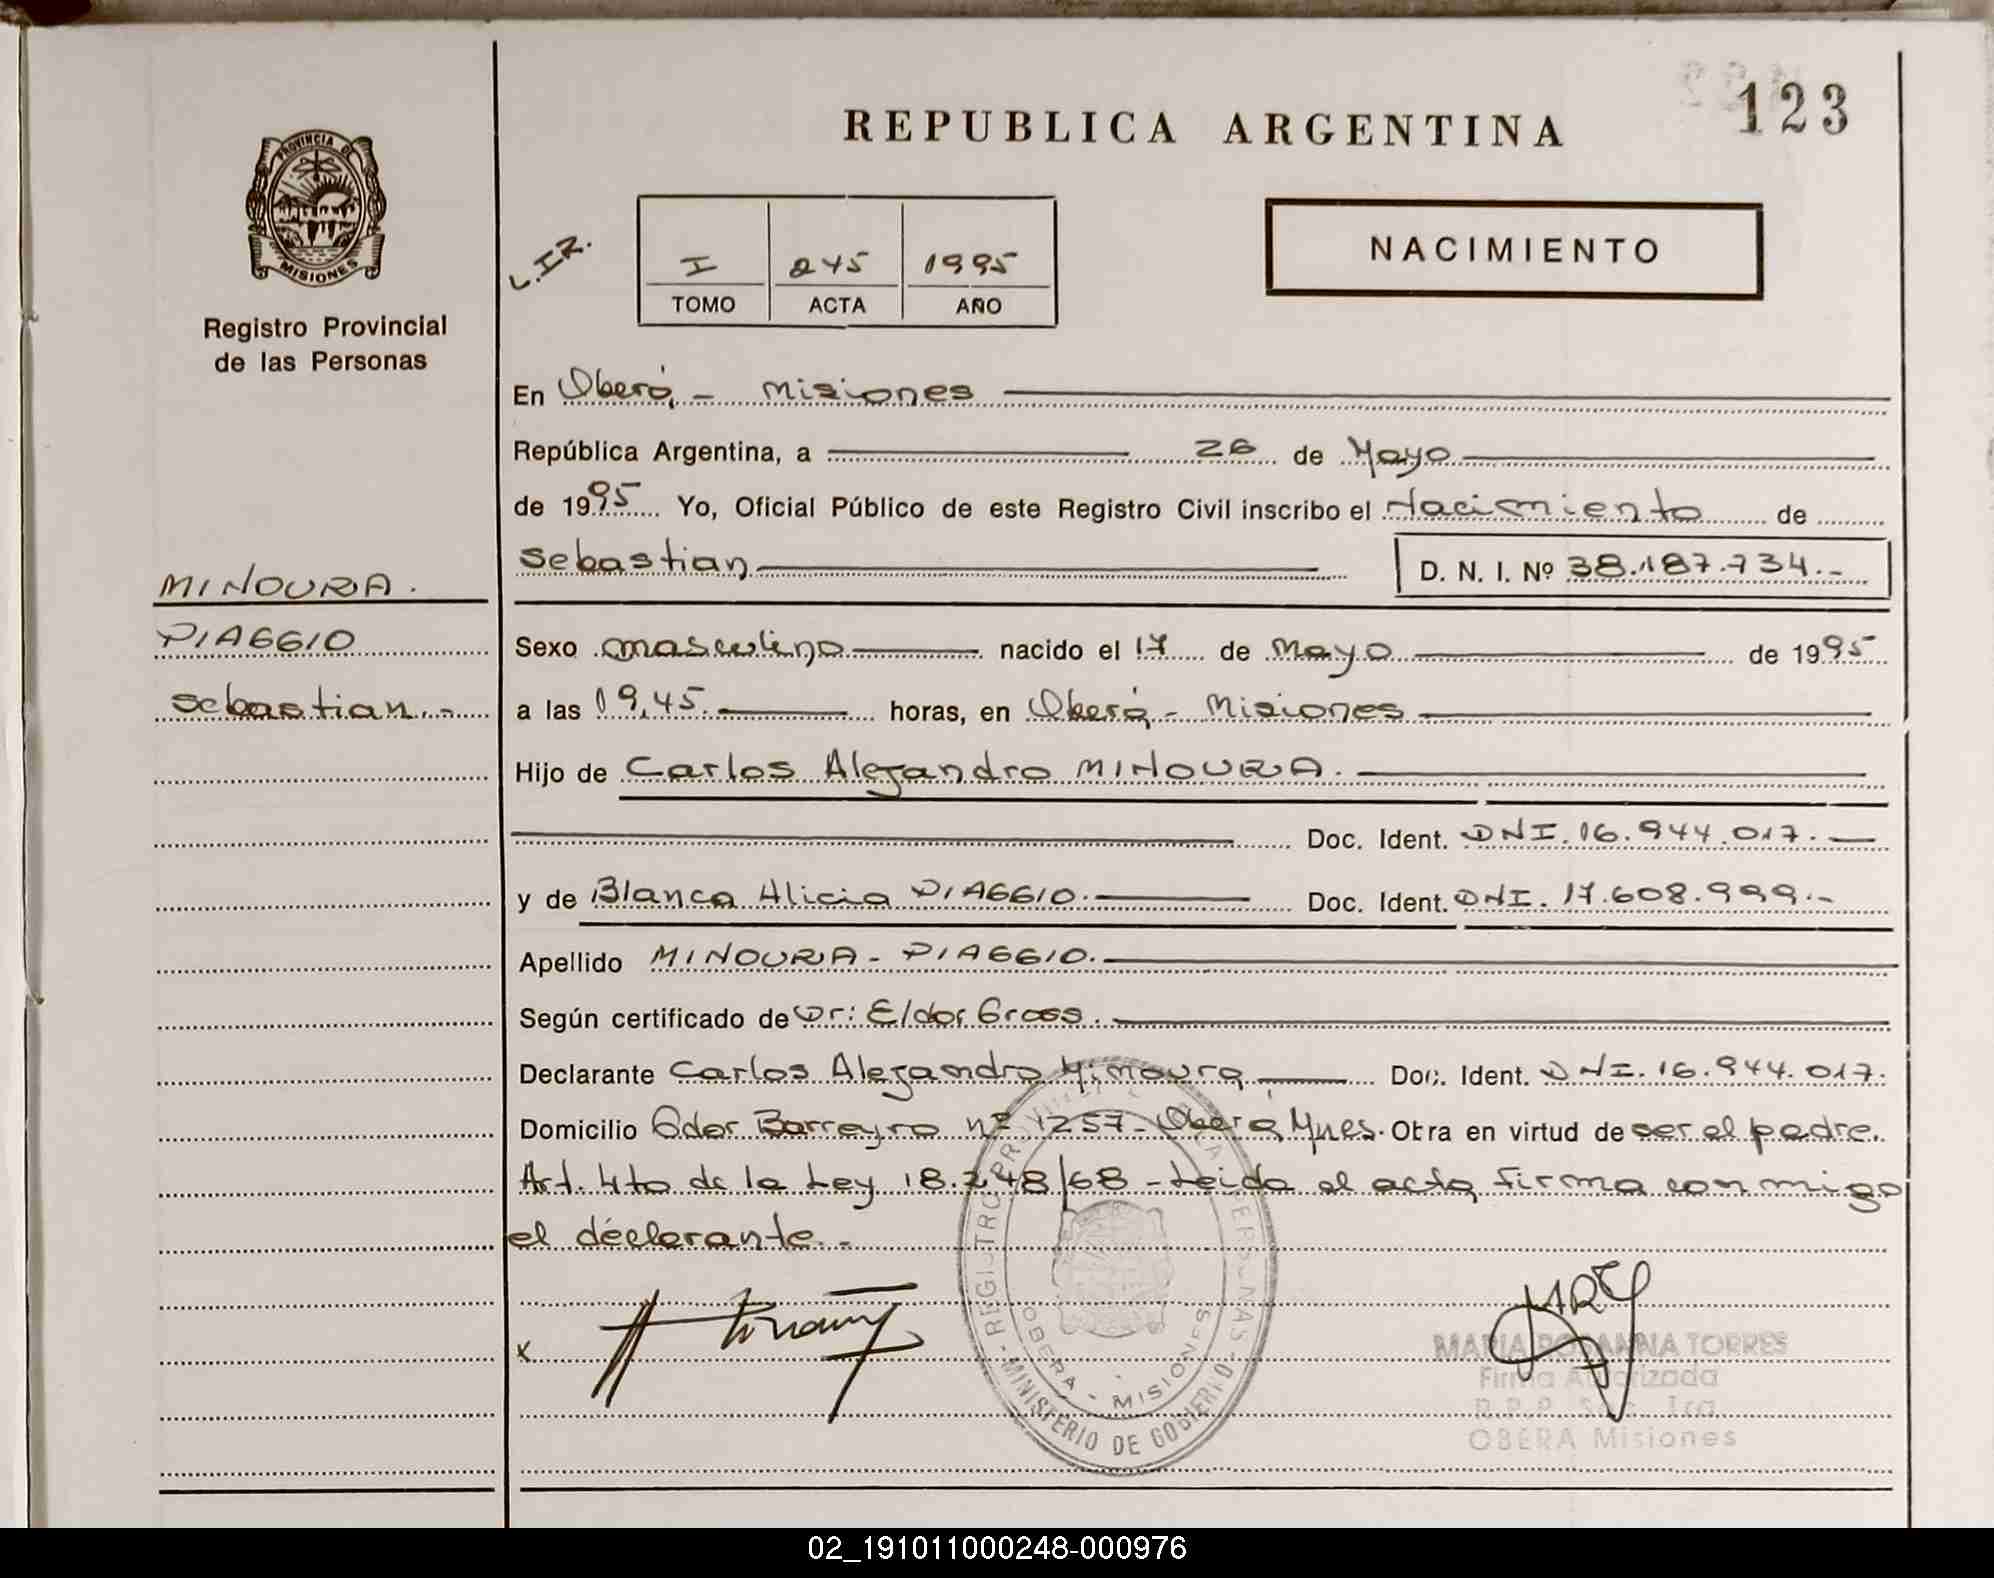 123
REPUBLICA ARGENTINA
PROVINCIA DE
MISIONES
Registro Provincial
de las Personas
L.I.R.
I 245 1995
TOMO ACTA AÑO
NACIMIENTO
En Oberá, - Misiones
República Argentina, a 26 de Mayo
de 1995 Yo, Oficial Público de este Registro Civil inscribo el Nacimiento de
Sebastian D. N. I. Nº 38.187.734.-
MINOURA.
PIAGGIO
Sebastian.-
Sexo masculino nacido el 17 de Mayo de 1995
a las 19,45. horas, en Oberá - Misiones
Hijo de Carlos Alejandro MINOURA.
Doc. Ident. DNI. 16.944.017.
y de Blanca Alicia PIAGGIO. Doc. Ident. DNI. 17.608.999.-
Apellido MINOURA - PIAGGIO.
Según certificado de Dr: Eldor Gross.
Declarante Carlos Alejandro Minoura Doc. Ident. DNI. 16.944.017.
Domicilio Gdor Barreyro nº 1257- Oberá, Mnes. Obra en virtud de ser el padre.
Art. 4to de la Ley 18.248/68 - Leida el acta, firma con migo
el declarante.-
x
REGISTRO PROVINCIAL DE LAS PERSONAS
OBERA - MISIONES
MINISTERIO DE GOBIERNO
MARIA ROSANNA TORRES
Firma Autorizada
R.P.P. Sec. 1ra
OBERA Misiones
02_191011000248-000976